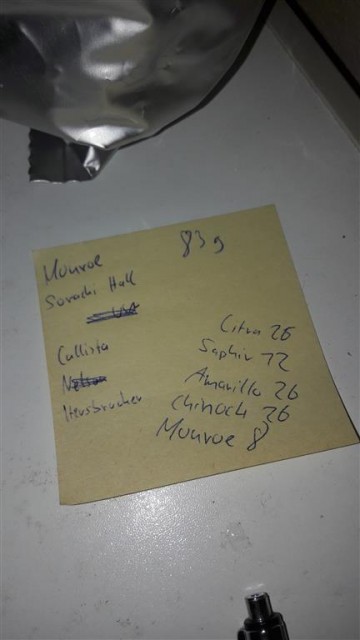 Monroe 83g
Sorachi Hall
Callista
Nelson
Hersbrucker
Citra 26
Saphir 12
Amarillo 26
Chinook 26
Monroe 8